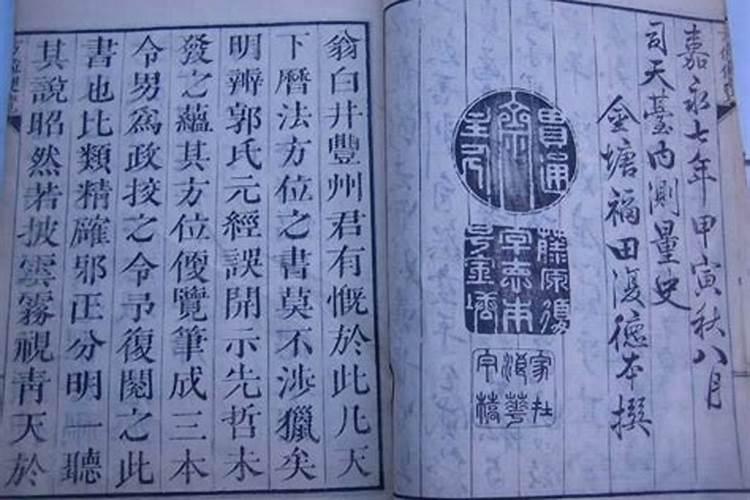 嘉永七年甲寅秋八月
司天臺内測量史
金塘福田復德本撰
貫通
藤原復
号金塘
家在
浪華
翁白井豐州君有慨於此凡天
下曆法方位之書莫不渉獵矣
明辨郭氏元經誤開示先哲未
發之蘊其方位便覽筆成三本
令男為政挍之令予復閱之此
書也比類精確邪正分明一聽
其說昭然若披雲霧視青天於